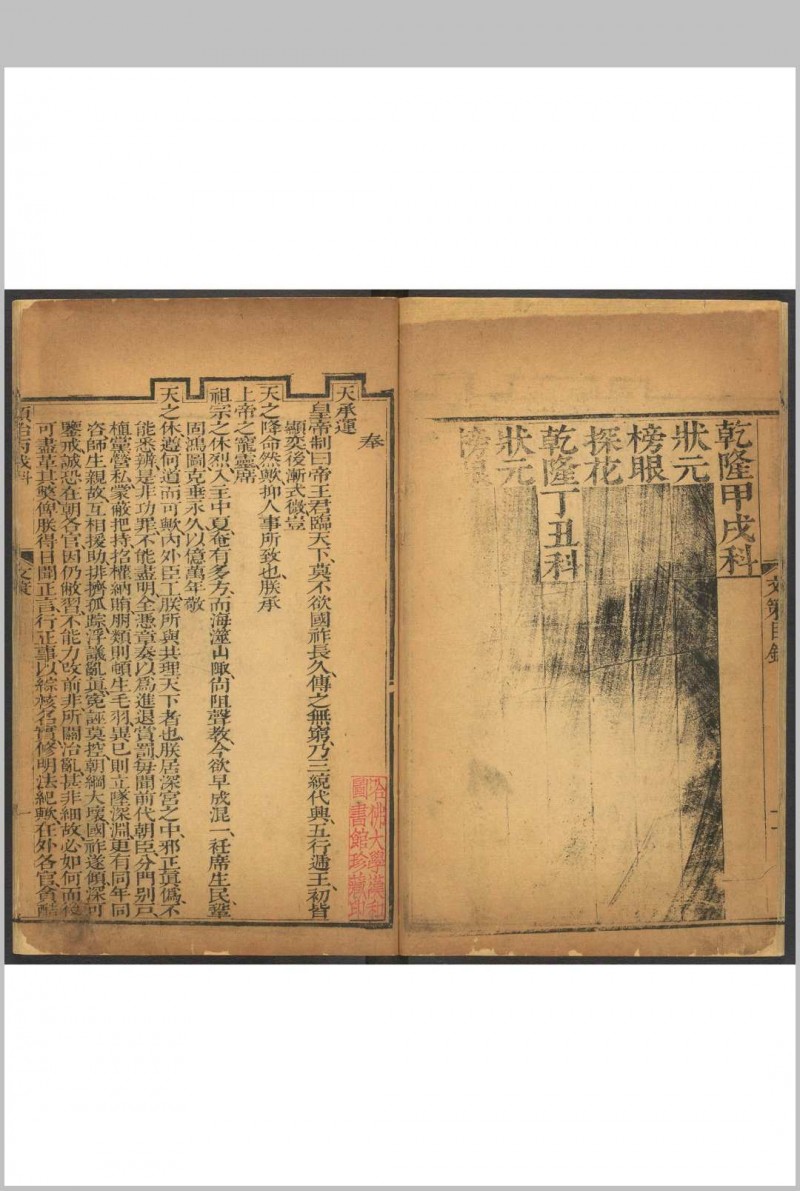 乾隆甲戌科
狀元
榜眼
探花
乾隆丁丑科
狀元
榜眼
文策目錄
奉
天承運
皇帝制曰帝王君臨天下莫不欲國祚長久傳之無窮乃三統代興五行遞王初皆
顯奕後漸式微豈
天之降命然歟抑人事所致也朕承
上帝之寵靈席
祖宗之休烈入主中夏奄有多方而海澨山陬尚阻聲教今欲早成混一衽席生民鞏
固鴻圖克垂永久以億萬年敬
天之休遵何道而可歟內外臣工朕所與共理天下者也朕居深宮之中邪正眞僞不
能悉辨是非功罪不能盡明全憑章奏以爲進退賞罰每聞前代朝臣分門別戶
植黨營私蒙蔽把持招權納賄朋類則頓生毛羽異己則立墜深淵更有同年同
咨師生親故互相援助排擠孤踪浮議亂眞冤誣莫控朝綱大壞國祚遂傾深可
鑒戒誠恐在朝各官因仍敝習不能力改前非所關治亂甚非細故必如何而後
可盡革其弊俾朕得日聞正言行正事以綜核名實修明法紀歟在外各官貪酷
順治丙戌科
文策
一
哈佛大學漢和
圖書館珍藏印